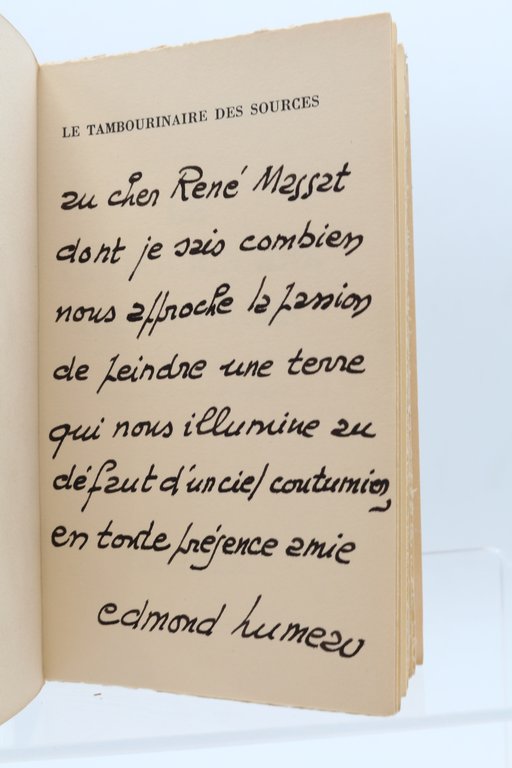 LE TAMBOURINAIRE DES SOURCES
au cher René Massat
dont je sais combien
nous approche la passion
de peindre une terre
qui nous illumine au
défaut d'un ciel coutumier,
en toute présence amie
edmond humeau